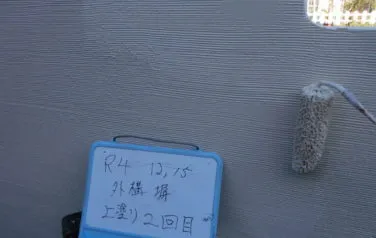 R4 12,15
外構 塀
上塗り2回目